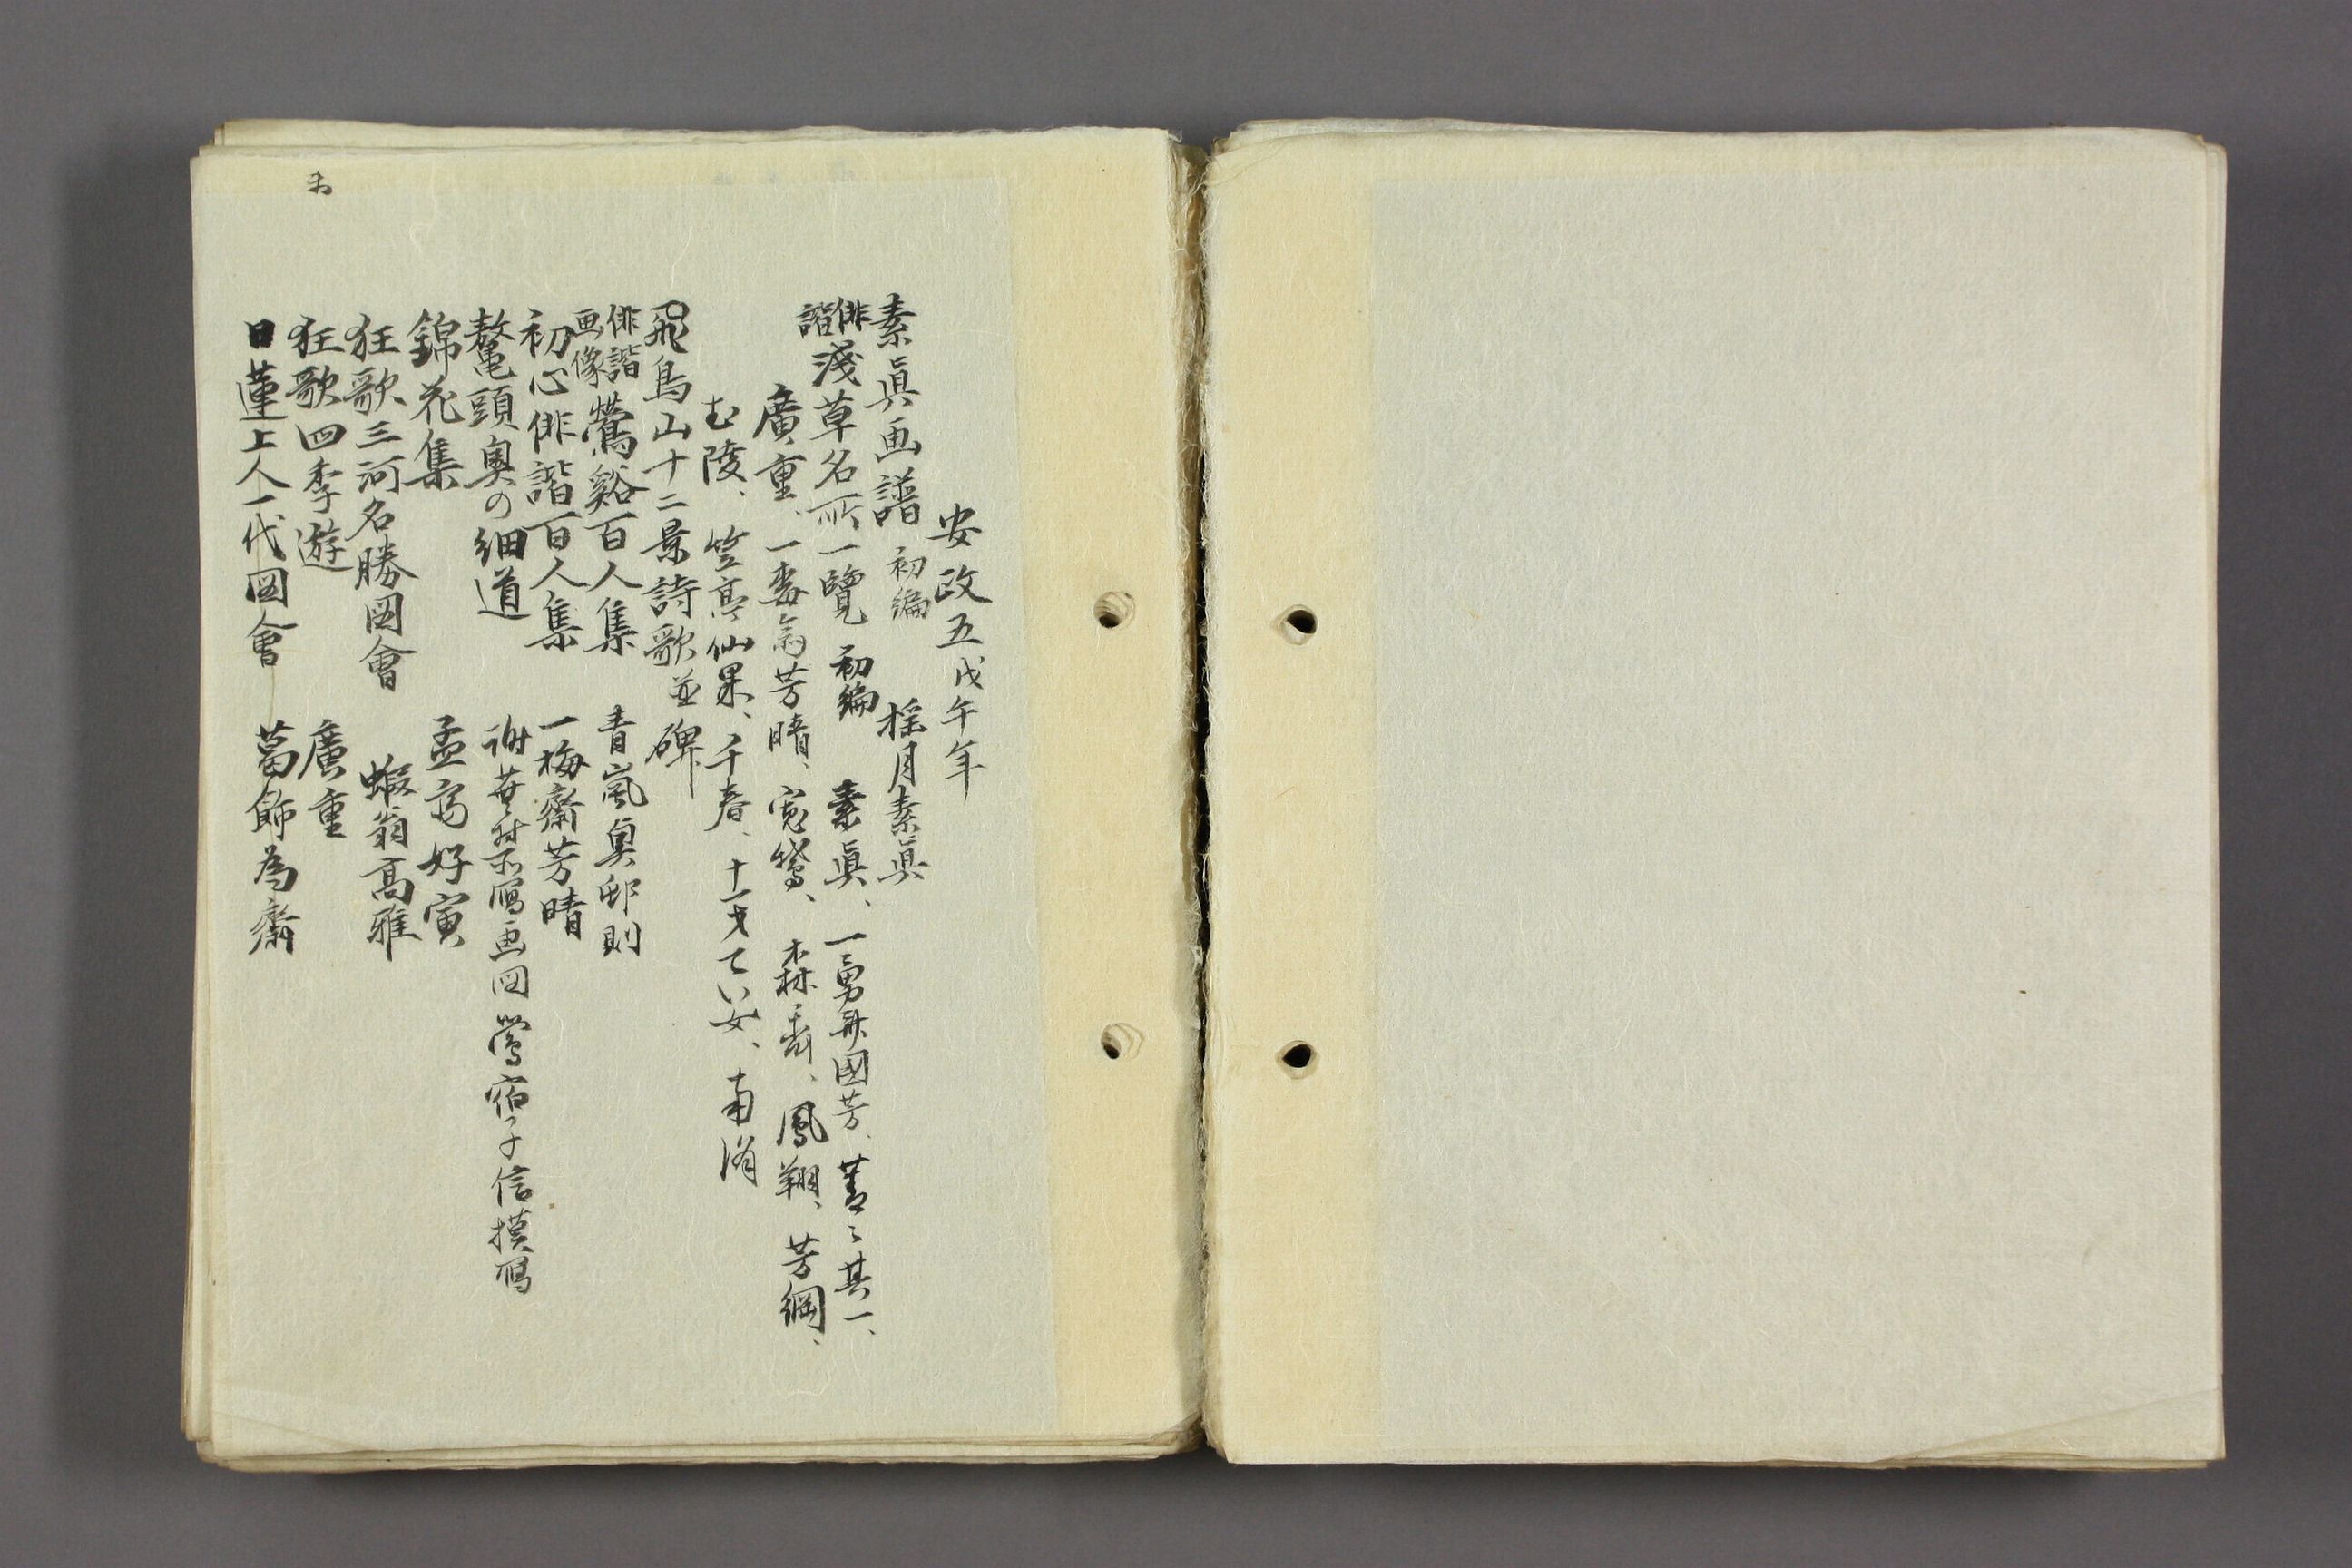 安政五戊午年
素眞画譜 初編 揺月素眞
俳諧 淺草名所一覽 初編 素眞、一勇齋國芳、蓋〻其一、
廣重、一梅齋芳晴、寛鶩、森斎、鳳翔、芳綱、
玄陵、笠亭仙果、千春、十一才てい女、南涛
飛鳥山十二景詩歌並碑
俳諧画像 鶯谿百人集 青嵐奥邨則
初心俳諧百人集 一梅齋芳晴
鼇頭奥の細道 謝蕪村所寫画図 鶯宿子信摸寫
錦花集 孟斎好寅
狂歌三河名勝図會 蝦翁高雅
狂歌四季遊 廣重
日蓮上人一代図會 葛飾為齋